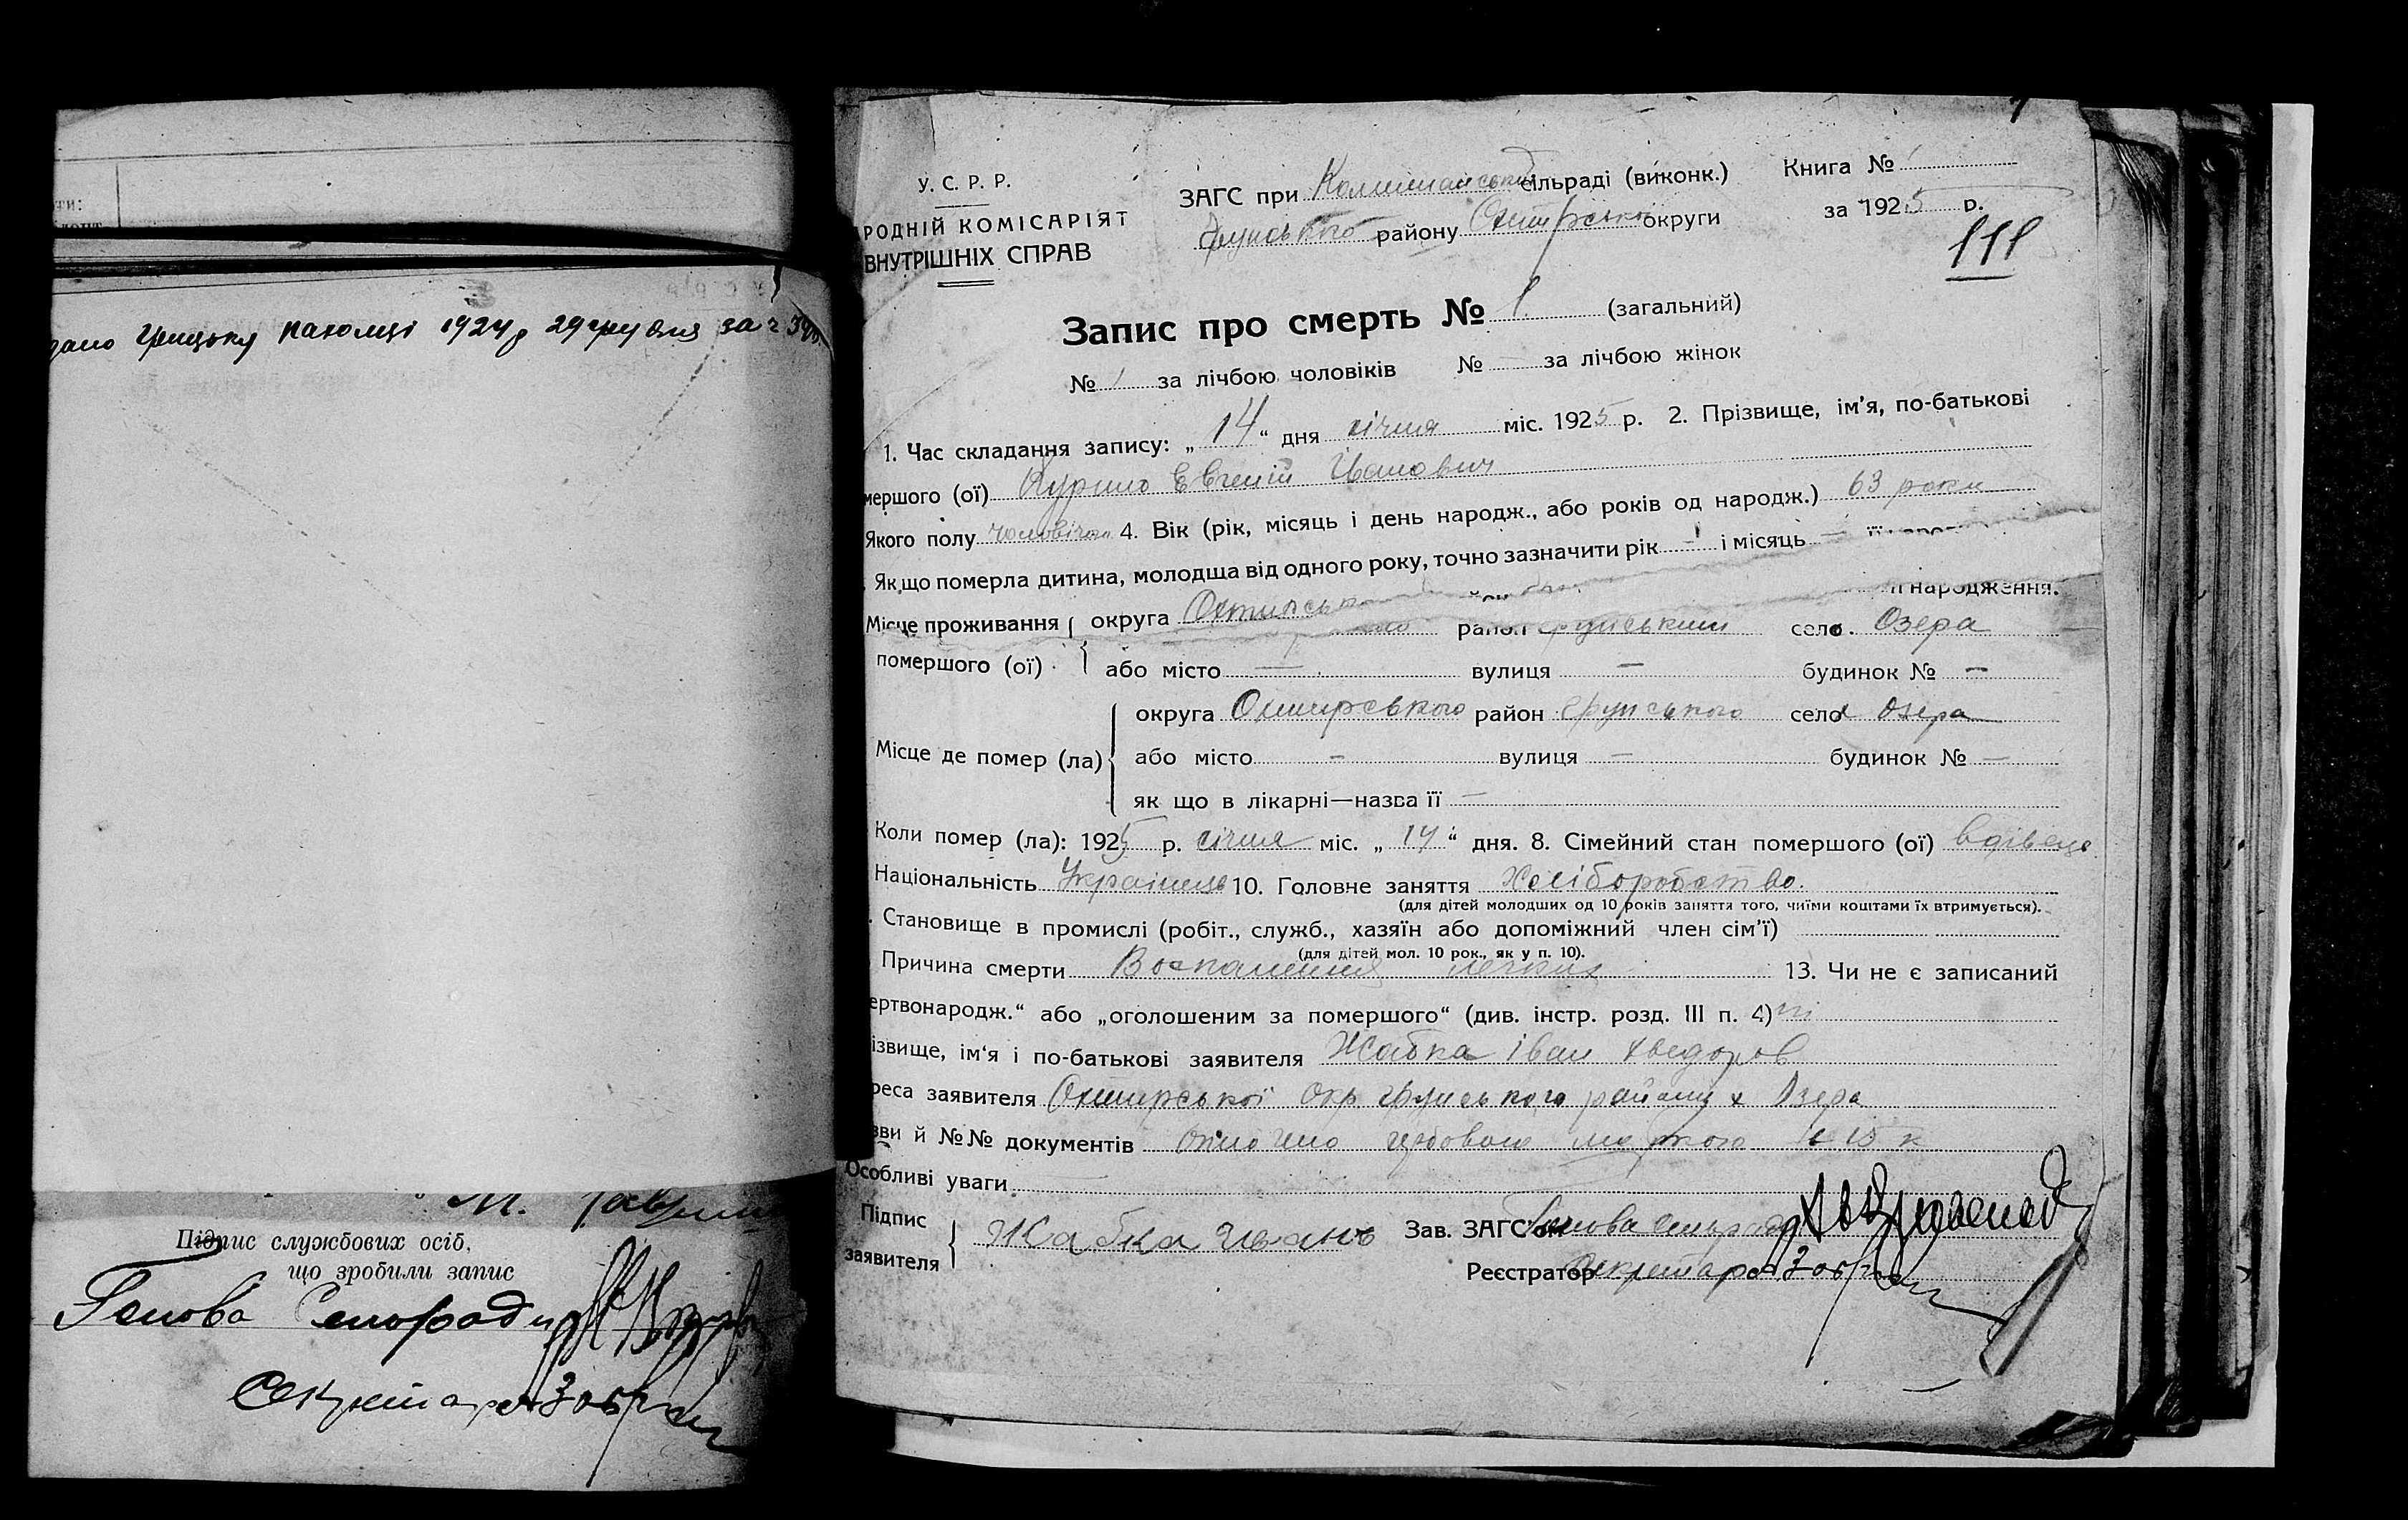 ти:
грицьку пахолці 1924 р 29 грудня за №
М.
Підпис службових осіб,
що зробили запис
Голова Сельради
Секретар
У. С. Р. Р.
РОДНІЙ КОМІСАРІЯТ
ВНУТРІШНІХ СПРАВ
ЗАГС при сільраді (виконк.)
Грунського району Охтирської округи
Книга № 1
за 1925 р.
111
Запис про смерть № 1. (загальний)
№ 1 за лічбою чоловіків № — за лічбою жінок
1. Час складання запису: „ 14 “ дня січня міс. 1925 р. 2. Прізвище, ім’я, по-батькові
мершого (ої) Курило Евгеній Иванович
Якого полу чоловічого 4. Вік (рік, місяць і день народж., або років од народж.) 63 роки
Як що померла дитина, молодща від одного року, точно зазначити рік — і місяць —
народження.
Місце проживання округа Охтирсько район грунський село. Озера
помершого (ої) або місто — вулиця — будинок № —
округа Охтирського район грунського село х Озера
Місце де помер (ла) або місто — вулиця — будинок № —
як що в лікарні—назва її —
Коли помер (ла): 1925 р. січня міс. „ 14 “ дня. 8. Сімейний стан помершого (ої) вдівець
Національність Українець 10. Головне заняття Хліборобство.
(для дітей молодших од 10 років заняття того, чиїми коштами їх втримується).
. Становище в промислі (робіт., служб., хазяїн або допоміжний член сім’ї)
(для дітей мол. 10 рок., як у п. 10).
Причина смерти Воспаления легких 13. Чи не є записаний
ертвонародж.“ або „оголошеним за помершого“ (див. інстр. розд. III п. 4) ні
ізвище, ім’я і по-батькові заявителя Жабка іван хведоров
реса заявителя Охтирської окр грунського району х Озера
зви й №№ документів оплочено гербовою маркою 15 к
Особливі уваги
Підпис
заявителя Жабка Иванъ Зав. ЗАГС’ом Голова сельради
Реєстратор Секретар